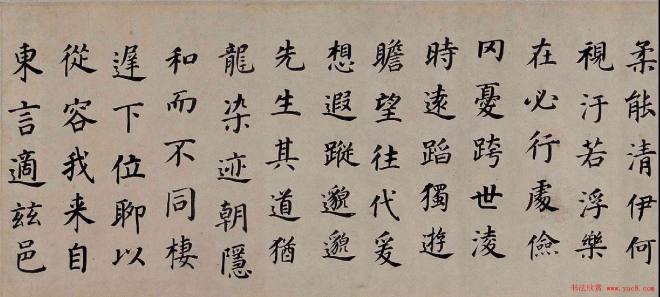 柔能清伊何
視汙若浮樂
在必行處儉
罔憂跨世淩
時遠蹈獨遊
瞻望往代爰
想遐蹤邈邈
先生其道猶
龍染迹朝隱
和而不同棲
遲下位聊以
從容我来自
東言適茲邑
书法欣赏
www.yac8.com